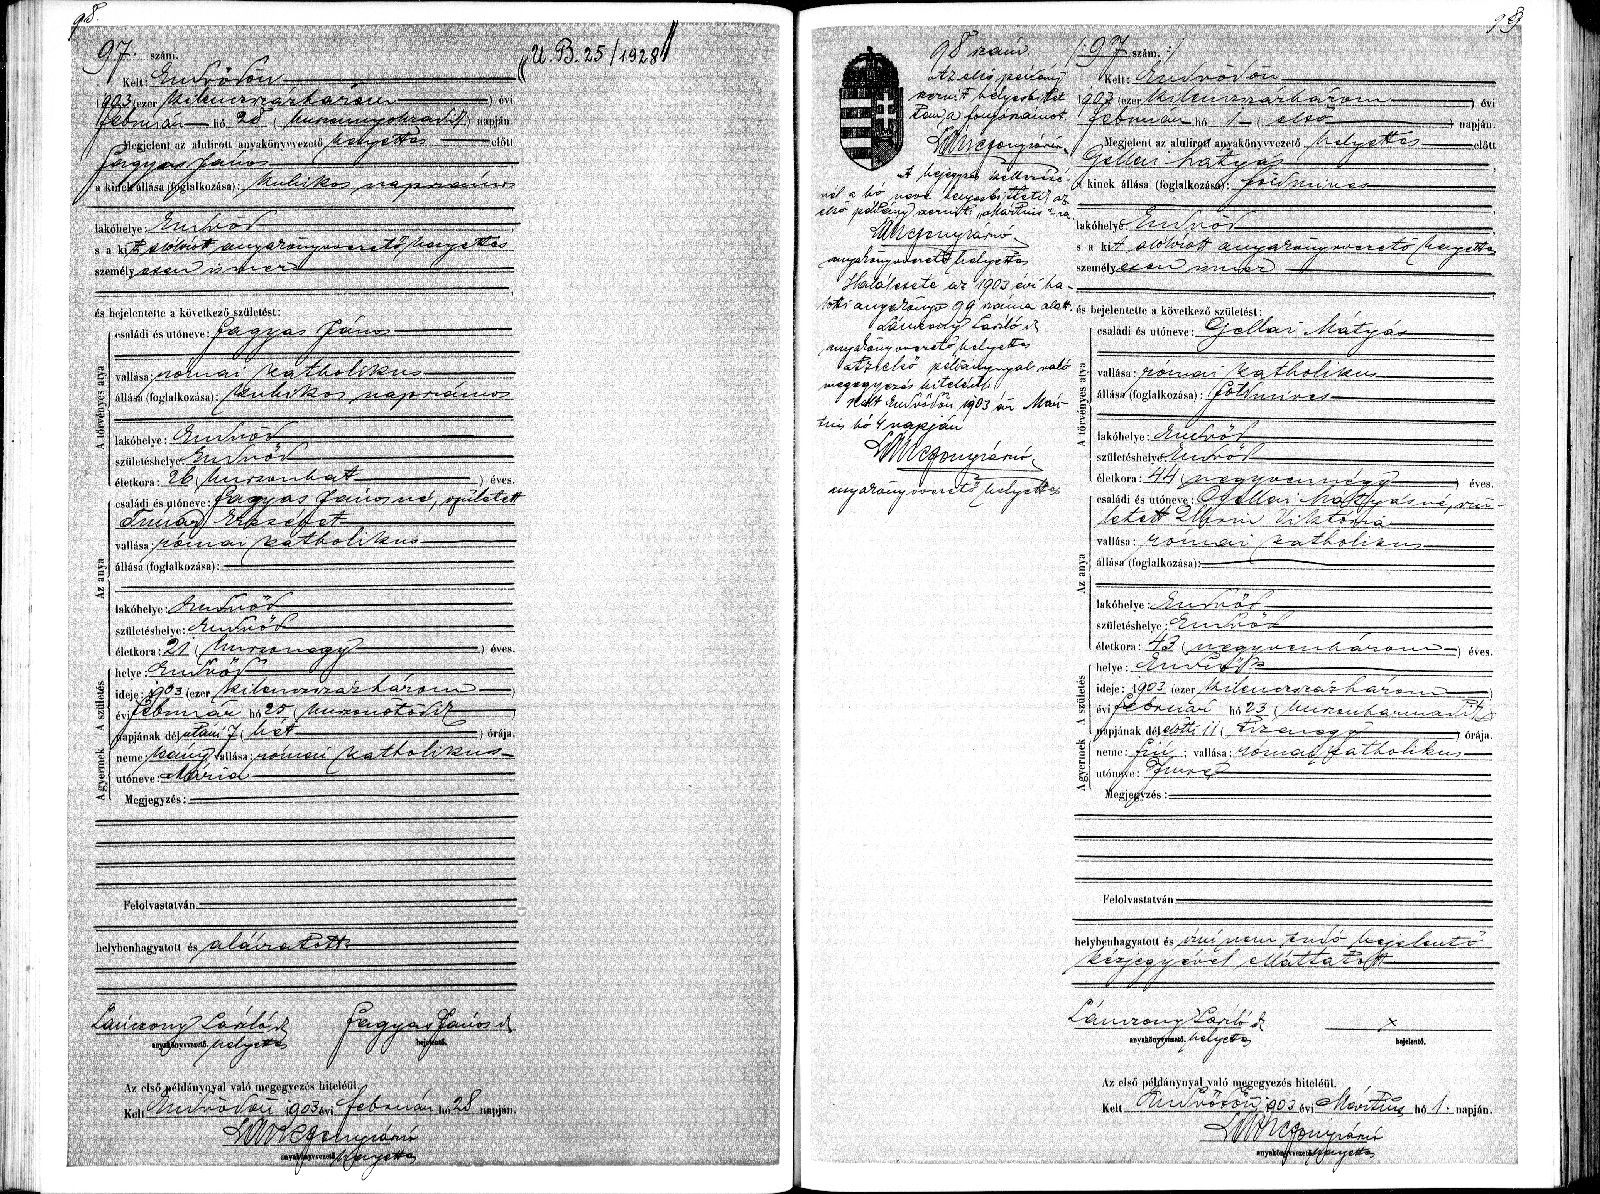 98.
97. szám.
Kelt: Endrődön
1903 (ezer kilenczszázhárom) évi
február hó 28 (huszonnyolczadik) napján.
Megjelent az alulirott anyakönyvvezető helyettes előtt
Fagyas János
a kinek állása (foglalkozása): kubikos napszámos
lakóhelye: Endrőd
s a kit alólirott anyakönyvvezető helyettes
személyesen ismer
és bejelentette a következő születést:
A törvényes atya
családi és utóneve: Fagyas János
vallása: római katholikus
állása (foglalkozása): kubikos napszámos
lakóhelye: Endrőd
születéshelye: Endrőd
életkora: 26 (huszonhat) éves.
Az anya
családi és utóneve: Fagyas Jánosné, született
Erzsébet
vallása: római katholikus
állása (foglalkozása):
lakóhelye: Endrőd
születéshelye: Endrőd
életkora: 21 (huszonegy) éves.
A születés
helye: Endrőd
ideje: 1903 (ezer kilenczszázhárom)
évi február hó 25 (huszonötödik)
napjának délutáni 7 (hét) órája.
A gyermek
neme: leány; vallása: római katholikus
utóneve: Mária
Megjegyzés:
Felolvastatván
helybenhagyatott és aláiratott
Lánczony László
anyakönyvvezető. helyettes
Fagyas János
bejelentő.
Az első példánynyal való megegyezés hiteléül.
Kelt Endrődön 1903 évi február hó 28 napján.
anyakönyvvezető helyettes
U. B. 25/1928
99
98 szám
Az első példány
szerint helyesbitet-
tem a
A bejegyzés
hó neve helyesbittetett az
első példány szerint "Mártius"-ra
anyakönyvvezető helyettes
Halálesete az 1903 évi ha-
lotti anyakönyv 99 száma alatt.
Lánczony László
anyakönyvvezető helyettes
Az első példánynyal való
megegyezés hiteléül
Kelt Endrődön 1903 év Már-
tius hó 4 napján
anyakönyvvezető helyettes
/: 97 szám. :/
Kelt: Endrődön
1903 (ezer kilenczszázhárom) évi
február hó 1 (első) napján.
Megjelent az alulirott anyakönyvvezető helyettes előtt
Gellai Mátyás
a kinek állása (foglalkozása): földmives
lakóhelye: Endrőd
s a kit alólirott anyakönyvvezető helyettes
személyesen ismer
és bejelentette a következő születést:
A törvényes atya
családi és utóneve: Gellai Mátyás
vallása: római katholikus
állása (foglalkozása): földmives
lakóhelye: Endrőd
születéshelye: Endrőd
életkora: 44 (negyvennégy) éves.
Az anya
családi és utóneve: Gellai Mátyásné, szü-
letett Viktória
vallása: római katholikus
állása (foglalkozása):
lakóhelye: Endrőd
születéshelye: Endrőd
életkora: 43 (negyvenhárom) éves.
A születés
helye: Endrőd
ideje: 1903 (ezer kilenczszázhárom)
évi február hó 23 (huszonharmadik)
napjának délelőtti 11 (tizenegy) órája.
A gyermek
neme: fiú; vallása: római katholikus
utóneve: Imre
Megjegyzés:
Felolvastatván
helybenhagyatott és irni nem tudó bejelentő
kézjegyével elláttatott
Lánczony László
anyakönyvvezető. helyettes
x
bejelentő.
Az első példánynyal való megegyezés hiteléül.
Kelt Endrődön 1903 évi Mártius hó 1. napján.
anyakönyvvezető helyettes